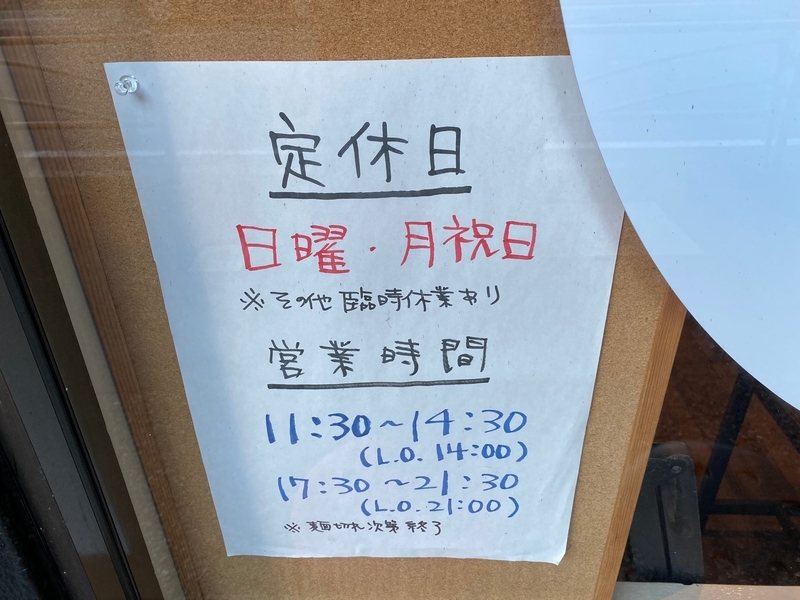 定休日
日曜・月祝日
※その他臨時休業あり
営業時間
11:30～14:30
(L.O.14:00)
17:30～21:30
(L.O.21:00)
※麺切れ次第終了